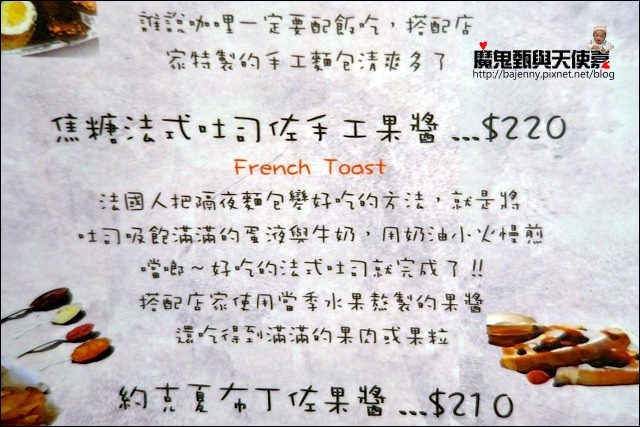 誰說咖哩一定要配飯吃，搭配店
家特製的手工麵包清爽多了
魔鬼甄與天使嘉
http://bajenny.pixnet.net/blog
焦糖法式吐司佐手工果醬 ...$220
French Toast
法國人把隔夜麵包變好吃的方法，就是將
吐司吸飽滿滿的蛋液與牛奶，用奶油小火慢煎
噹啷～好吃的法式吐司就完成了!!
搭配店家使用當季水果熬製的果醬
還吃得到滿滿的果肉或果粒
約克夏布丁佐果醬 ...$210